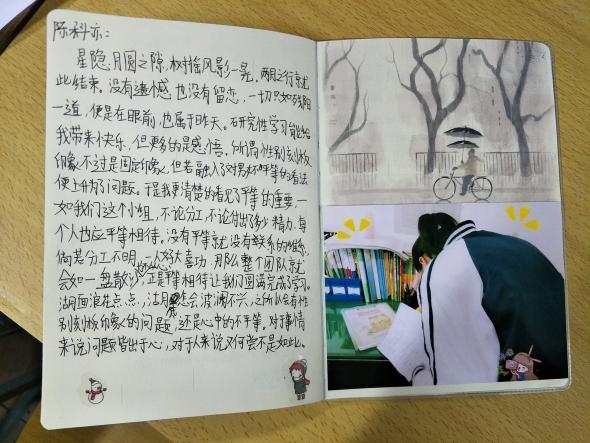 陈科亦：
星隐月圆之隙，树摇风影一晃，两月之行就
此结束，没有遗憾也没有留恋，一切只如残阳
一道，便是在眼前也属于昨天。研究性学习能给
我带来快乐，但更多的是感悟。所谓性别刻板
印象不过是固定印象，但若融入了对男女不平等的看法
便上升为了问题。于是我更清楚的看见了平等的重要，一
如我们这个小组，不论分工，不论付出了多少精力，每
个人也应平等相待。没有平等就没有关系的维系，
倘若分工不明，一人好大喜功，那么整个团队就
会如一盘散沙，正是平等相待让我们圆满完成了学习。
湖面浪花点点，沽月怎会波澜不兴，之所以会有性
别刻板印象的问题，还是心中的不平等，对于事情
来说问题皆出于心，对于人来说又何尝不是如此。